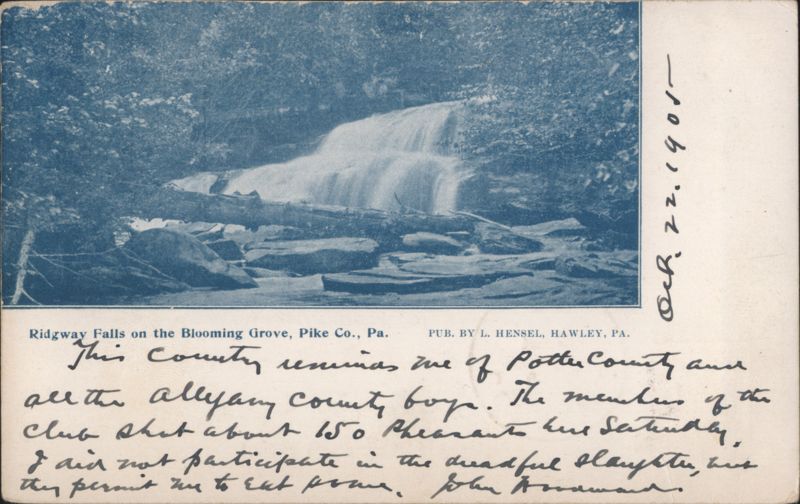 Ridgway Falls on the Blooming Grove, Pike Co., Pa.
PUB. BY L. HENSEL, HAWLEY, PA.
Oct. 22. 1905
This County reminds me of Potter County and
all the Allegany County boys. The members of the
club shot about 150 Pheasants here Saturday.
I did not participate in the dreadful slaughter, but
they permit me to eat some. John Woodward